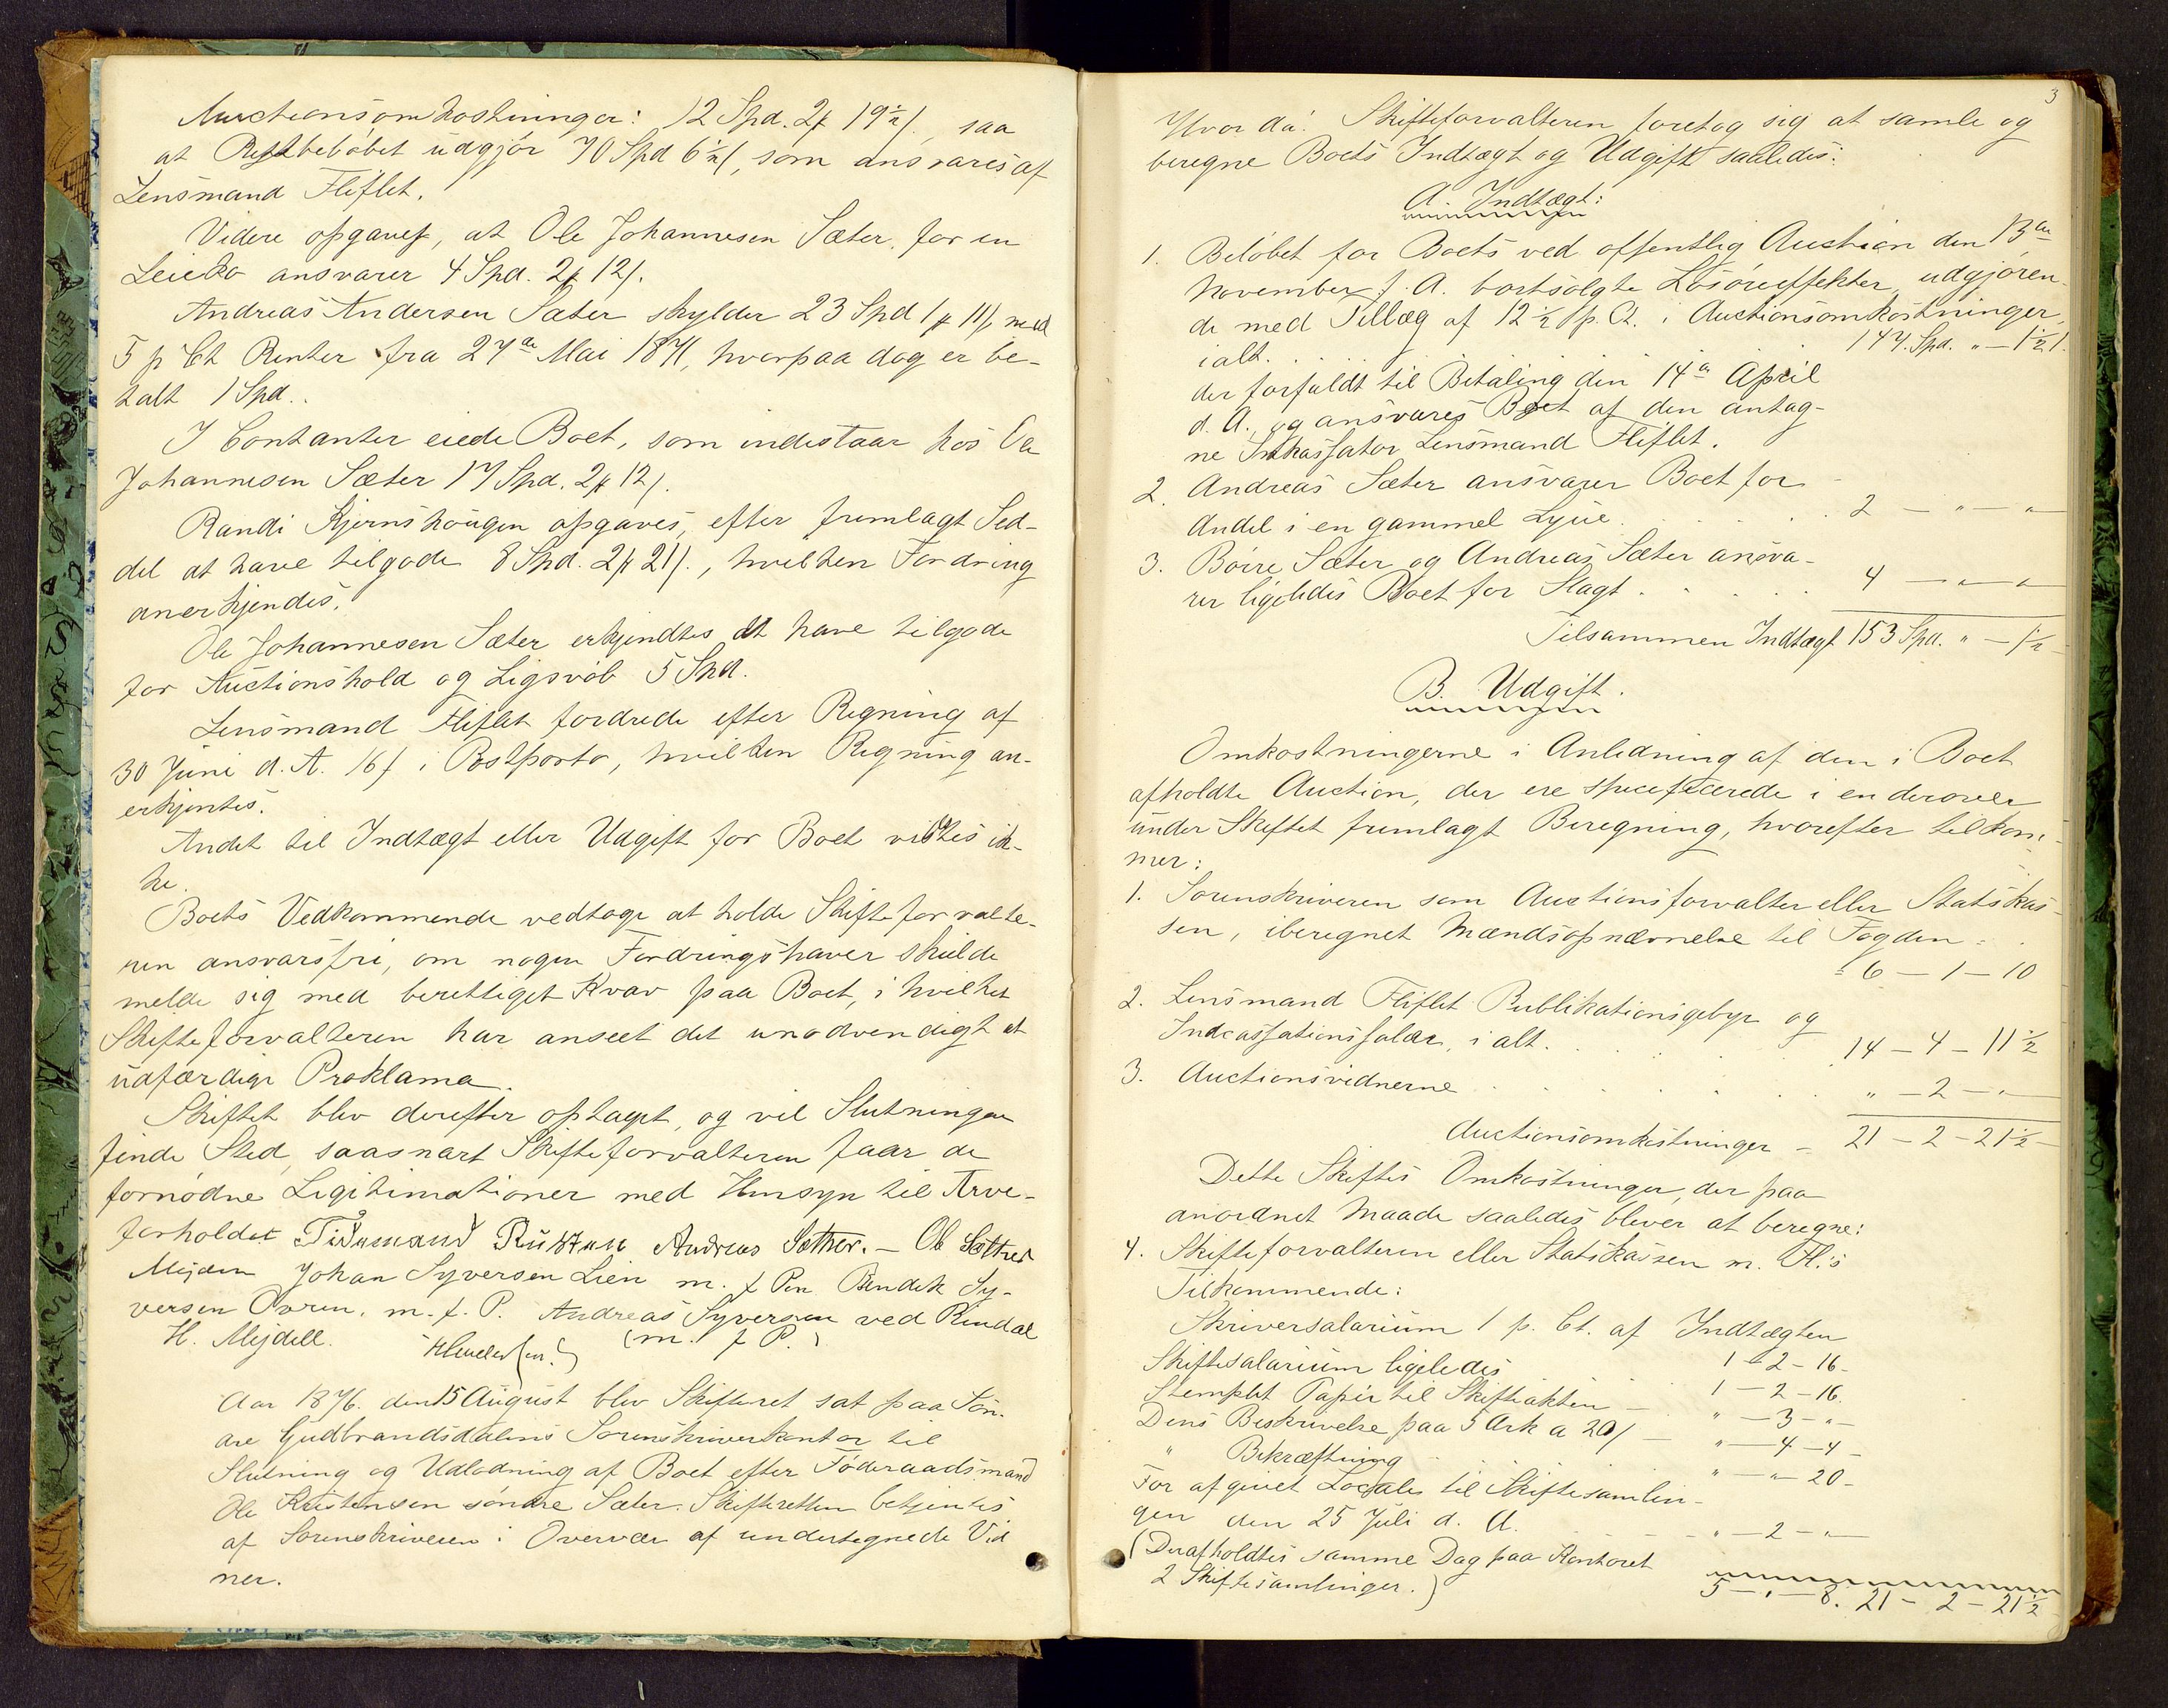 Auctionsomkostninger: 12 Spd. 2 # 19½ /, saa
at Restbeløbet udgjør 70 Spd 6½ /, som ansvares af
Lensmand Fliflet.
Videre opgaves, at Ole Johannesen Sæter, for en
Leieko ansvarer 4 Spd. 2 # 12 /.
Andreas Andersen Sæter skylder 23 Spd 1 # 11 /, med
5 p Ct Renter fra 27de Mai 1871, hvorpaa dog er be-
talt 1 Spd..
I Contanter eiede Boet, som indestaar hos Ole
Johannesen Sæter 17 Spd. 2 # 12 /.
Randi Kjernshougen opgaves, efter fremlagt Sed-
del at have tilgode 8 Spd. 2 # 21 /., hvilken Fordring
anerkjendes.
Ole Johannesen Sæter erkjendtes at have tilgode
for Auctionshold og Ligsvøb 5 Spd.
Lensmand Fliflet fordrede efter Regning af
30 Juni d. A. 16 / i Postporto, hvilken Regning an-
erkjentes.
Andet til Indtægt eller Udgift for Boet vidstes ik-
ke.
Boets Vedkommende vedtoge at holde Skifteforvalte-
ren ansvarsfri, om nogen Fordringshaver skulde
melde sig med berettiget Krav paa Boet, i hvilket
Skifteforvalteren har anseet det unødvendigt at
udfærdige Proklama.
Skiftet blev derefter optaget, og vil Slutningen
finde Sted, saasnart Skifteforvalteren faar de
fornødne Legitimationer med Hensyn til Arve-
forholdet Tidemand Rusten Andreas Sæther. – Ole Sæther
Mejdem Johan Syversen Lien m. f Pen Bendik Sy-
versen Ovren. m. f. P. Andreas Syversen ved Rindal
H. Mejdell. (m. f P.)
Aar 1876. den 15 August blev Skifteret sat paa Søn-
dre Gudbrandsdalens Sorenskriverkontor til
Slutning og Udlodning af Boet efter Føderaadsmand
Ole Kristensen søndre Sæter. Skifteretten betjentes
af Sorenskriveren i Overvær af undertegnede Vid
ner.
3
Hvor da: Skifteforvalteren foretog sig at samle og
beregne Boets Indtægt og Udgift saaledes:
A. Indtægt:
1. Beløbet for Boets ved offentlig Auction den 13de
November f. A. bortsolgte Løsøreeffekter, udgjøren-
de med Tillæg af 12½ p. Ct. i Auctionsomkostninger,
ialt. . . . 147. Spd. " – 1½ /.
der forfaldt til Betaling den 14de April
d. A. og ansvares Boet af den antag-
ne Inkassator Lensmand Fliflet.
2. Andreas Sæter ansvarer Boet for
Andel i en gammel Lyue . . . . . 2 – " – "
3. Børre Sæter og Andreas Sæter ansva-
rer ligeledes Boet for Slagt . . . . 4 – " – "
Tilsammen Indtægt 153 Spd. " – 1½
B. Udgift.
Omkostningerne i Anledning af den i Boet
afholdte Auction, der ere specificerede i en derover
under Skiftet fremlagt Beregning, hvorefter tilkom-
mer:
1. Sorenskriveren som Auctionsforvalter eller Statskas-
sen, iberegnet Mændsopnævnelse til Fogden =
6 – 1 – 10
2. Lensmand Fliflet Publikationsgebyr og
Indcassationssalær, i alt. . . . 14 – 4 – 11½
3. Auctionsvidnerne . . . . . " – 2 – "
Auctionsomkostninger – 21 – 2 – 21½ –
Dette Skiftes Omkostninger, der paa
anordnet Maade saaledes bliver at beregne:
4. Skifteforvalteren eller Statskassen m. Fl.s
Tilkommende:
Skriversalarium 1 p. Ct. af Indtægten
1 – 2 – 16 –
Skiftesalarium ligeledes 1 – 2 – 16.
Stemplet Papir til Skifteakten – " – 3 – " –
Dens Beskrivelse paa 5 Ark a 20 / – " – 4 – 4 –
" Bekræftning " – " – 20 –
For afgivet Locale til Skiftesamlin-
gen den 25 Juli d. A. " – 2 – "
(Derafholdtes samme Dag paa Kontoret
2 Skiftesamlinger.)
5 – " – 8. 21 – 2 – 21½